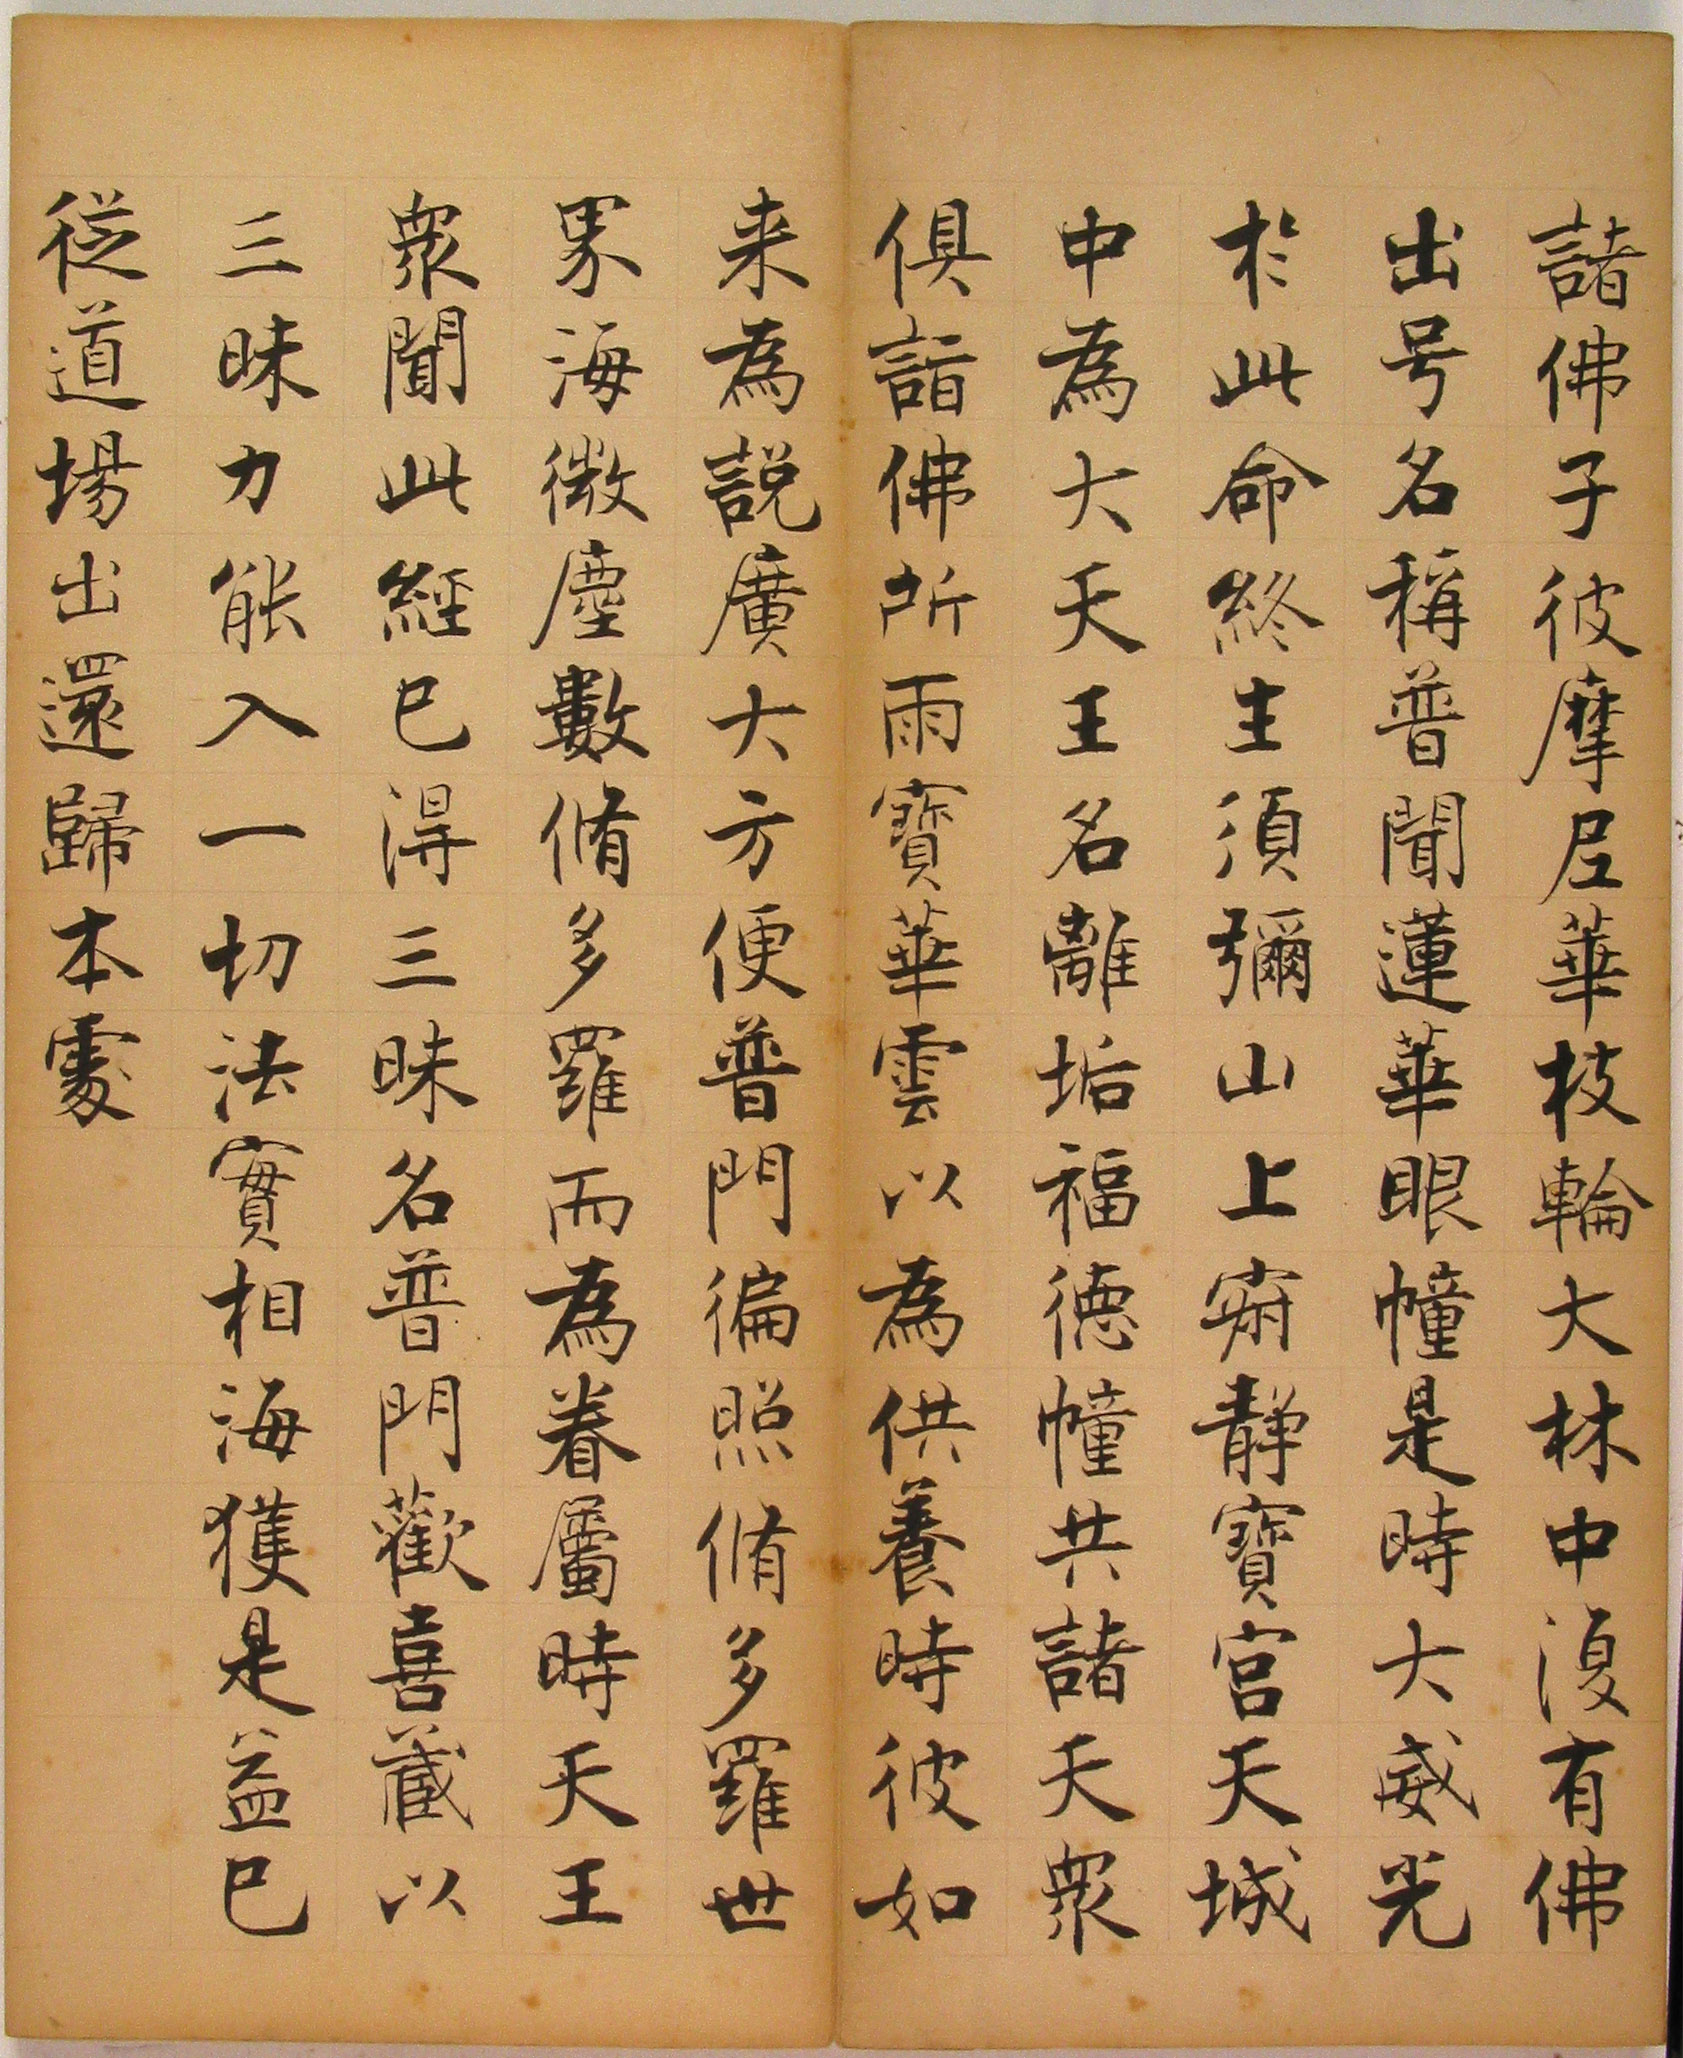 諸佛子彼摩尼華枝輪大林中復有佛
出号名稱普聞蓮華眼幢是時大威光
於此命終生須彌山上寂靜寶宮天城
中為大天王名離垢福德幢共諸天衆
俱詣佛所雨寶華雲以為供養時彼如
来為説廣大方便普門徧照脩多羅世
界海微塵數脩多羅而為眷屬時天王
衆聞此經已得三昧名普門歡喜蔵以
三昧力能入一切法實相海獲是益已
從道場出還歸本處